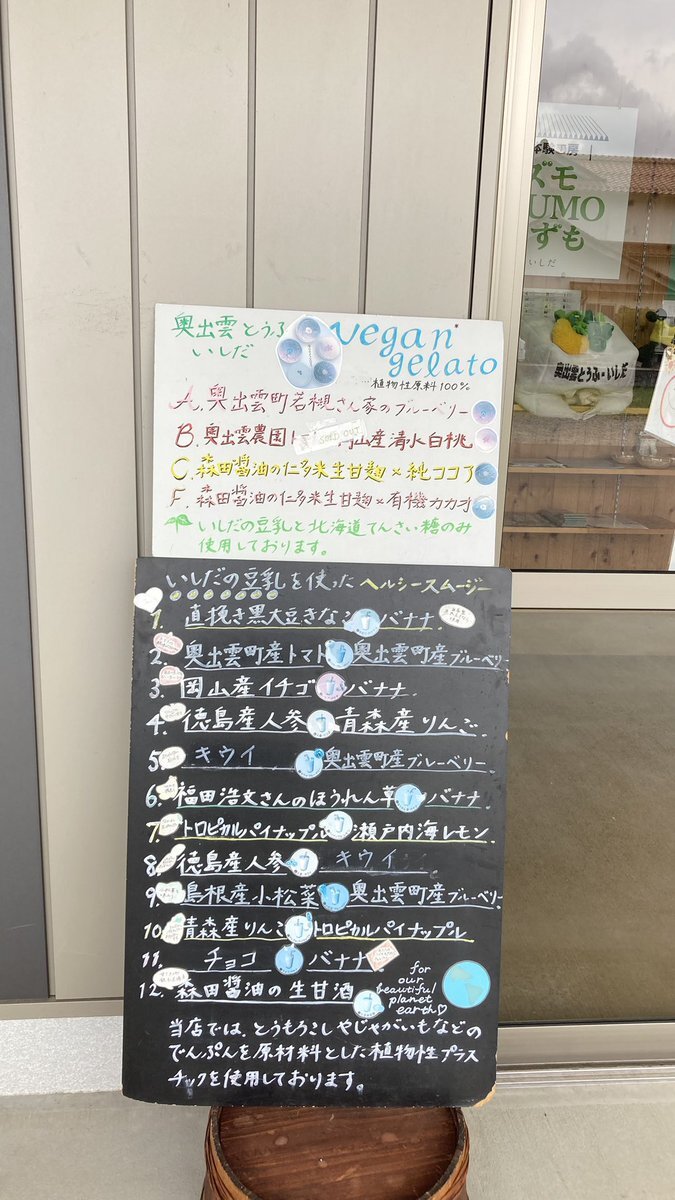 奥出雲とうふ
いしだ
Vegan
gelato
…植物性原料100%
A. 奥出雲町若槻さん家のブルーベリー
B. 奥出雲農園 山産清水白桃
SOLD OUT
C. 森田醤油の仁多米生甘麹×純ココア
F. 森田醤油の仁多米生甘麹×有機カカオ
いしだの豆乳と北海道てんさい糖のみ
使用しております。
いしだの豆乳を使った ヘルシースムージー
1. 直挽き黒大豆きなこ バナナ
2. 奥出雲町産トマト 奥出雲町産ブルーベリー
3. 岡山産イチゴ バナナ
4. 徳島産人参 青森産りんご
5. キウイ 奥出雲町産ブルーベリー
6. 福田浩文さんのほうれん草 バナナ
7. トロピカルパイナップル 瀬戸内海レモン
8. 徳島産人参 キウイ
9. 島根産小松菜 奥出雲町産ブルーベリー
10. 青森産りんご トロピカルパイナップル
11. チョコ バナナ
12. 森田醤油の生甘酒
for
our
beautiful
planet
earth♡
当店では、とうもろこしやじゃがいもなどの
でんぷんを原材料とした植物性プラス
チックを使用しております。
ズモ
UMO
ずも
いしだ
奥出雲とうふ・いしだ